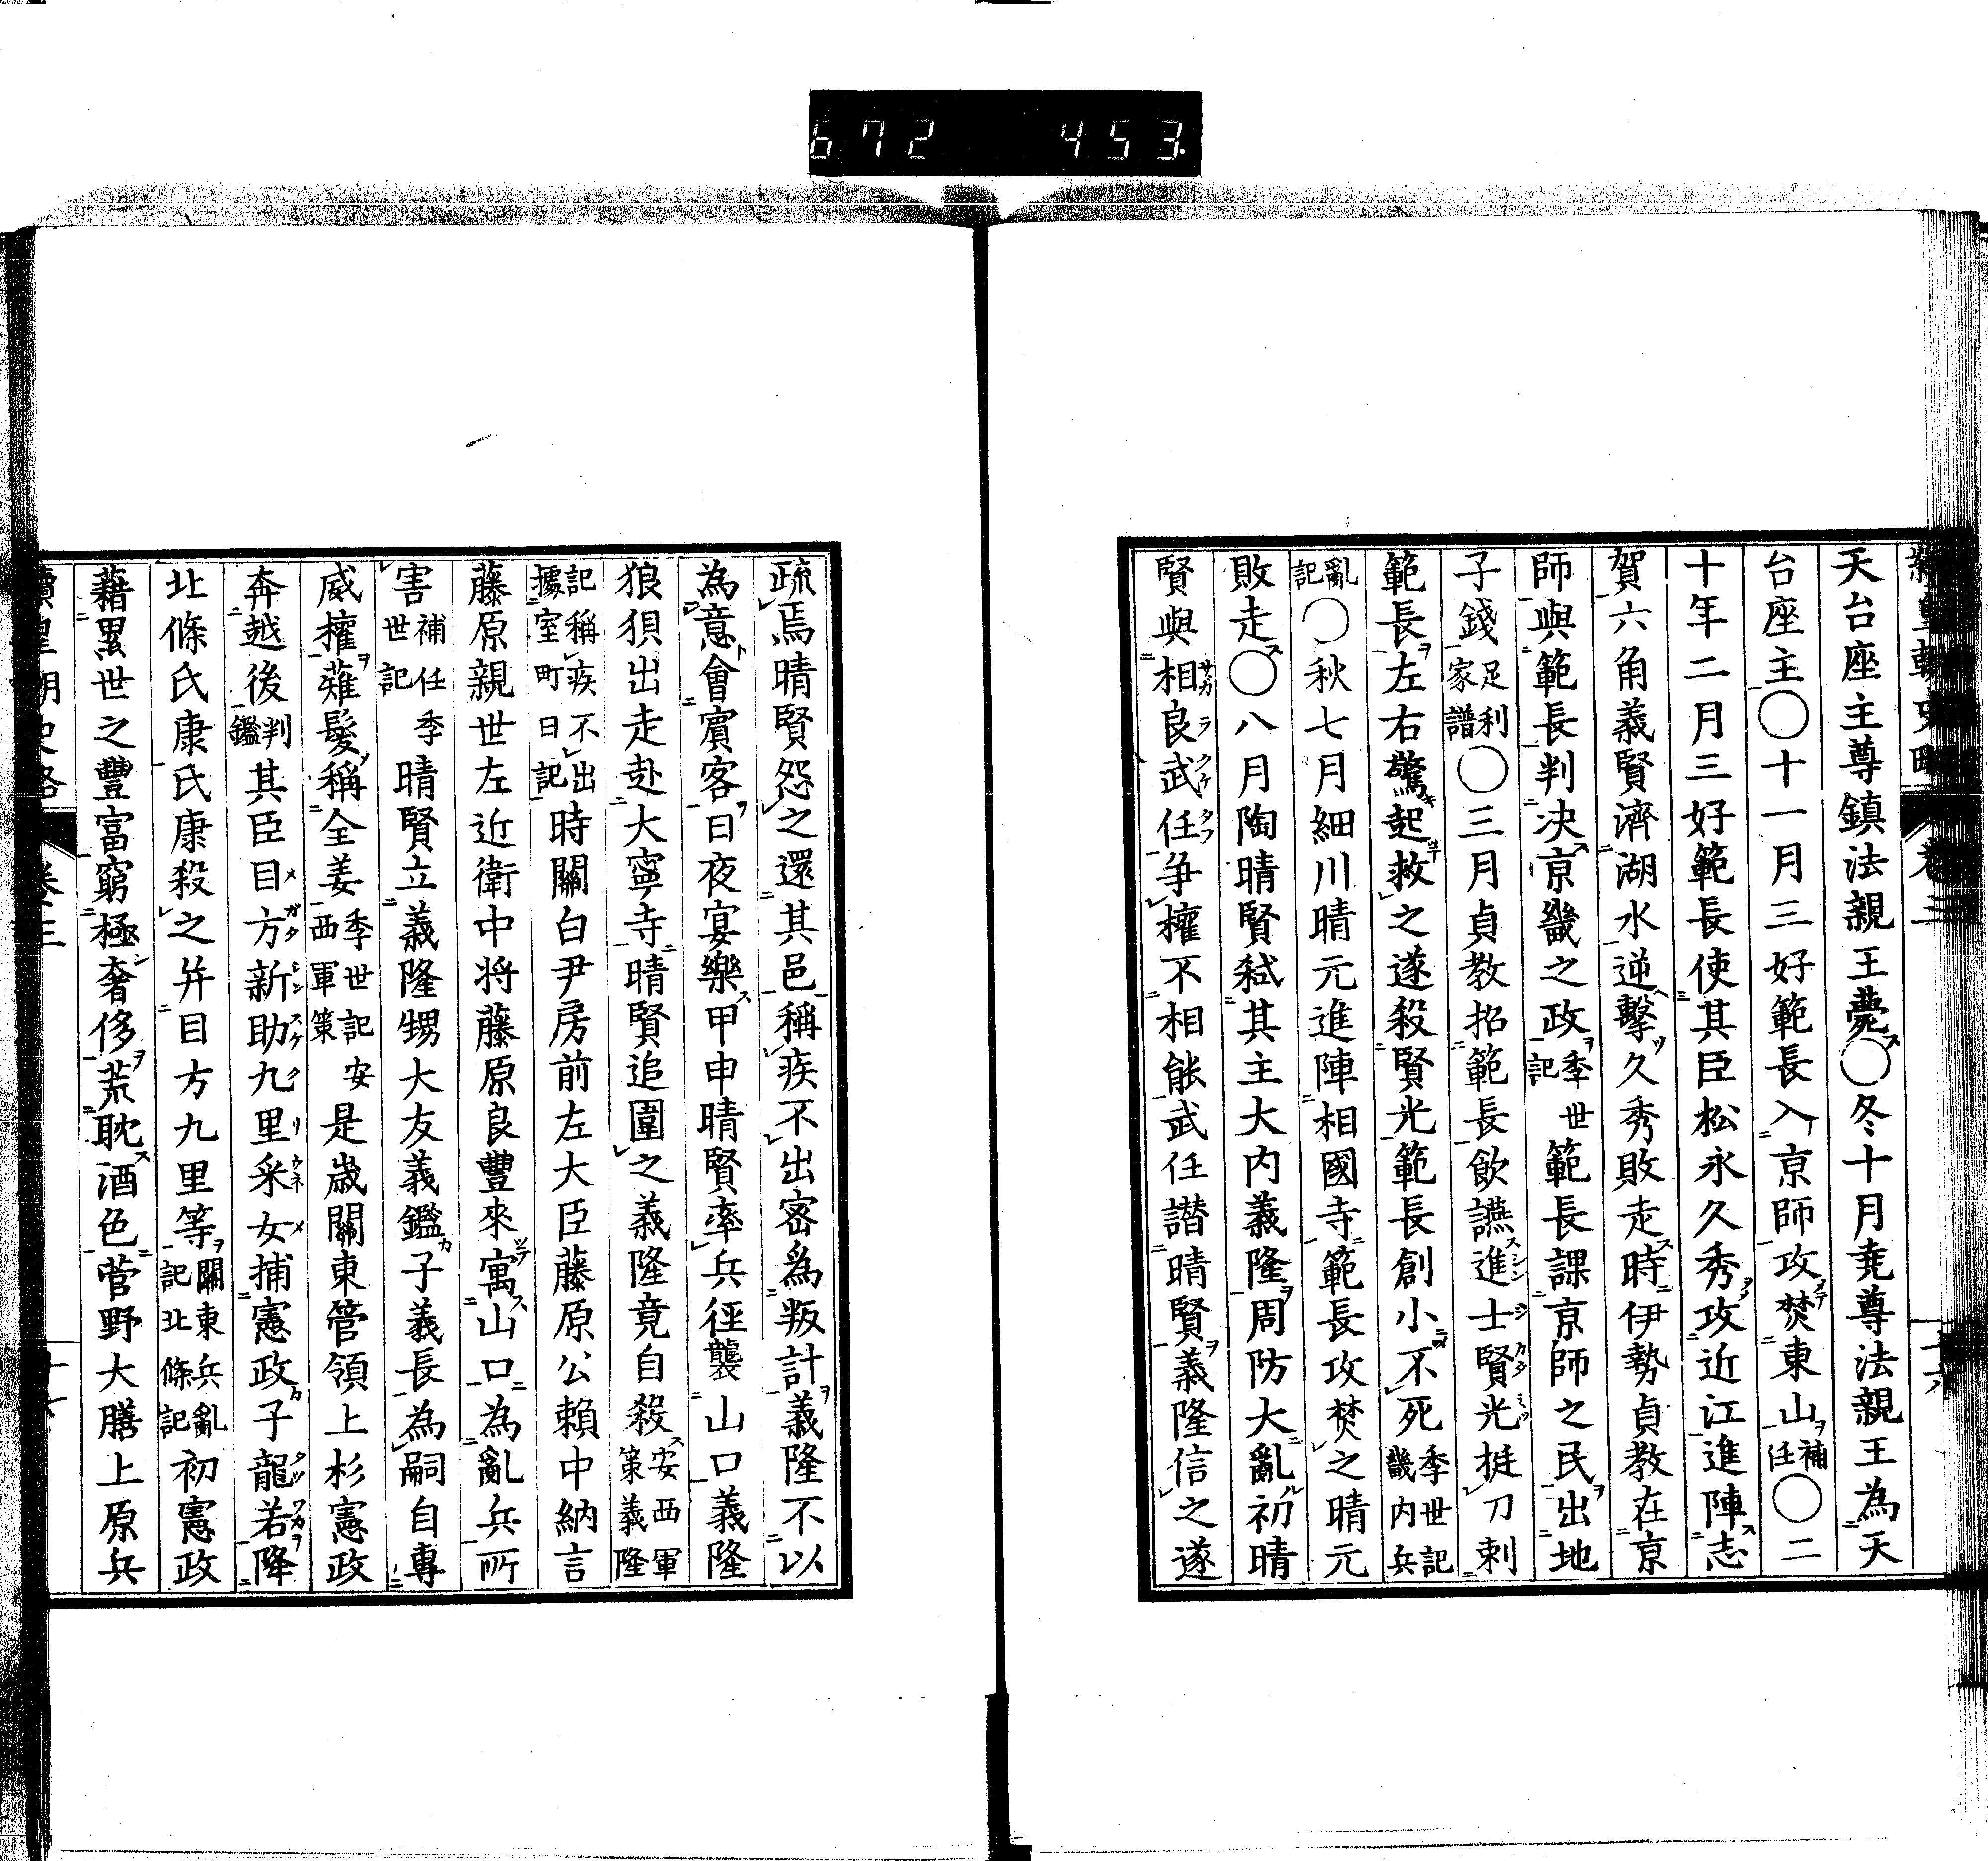 672 453
天台座主尊鎮法親王薨○冬十月堯尊法親王為天
台座主○十一月三好範長入京師攻焚東山補任○二
十年二月三好範長使其臣松永久秀攻近江進陣志
賀六角義賢濟湖水逆擊久秀敗走時伊勢貞教在京
師與範長判決京畿之政季世記範長課京師之民出地
子錢足利家譜○三月貞教招範長飲讌進士賢光挺刀刺
範長左右驚起救之遂殺賢光範長創小不死季世記畿内兵
亂記○秋七月細川晴元進陣相國寺範長攻焚之晴元
敗走○八月陶晴賢弒其主大内義隆周防大亂初晴
賢與相良武任爭權不相能武任譖晴賢義隆信之遂
疏焉晴賢怨之還其邑稱疾不出密為叛計義隆不以
為意會賓客日夜宴樂甲申晴賢率兵徑襲山口義隆
狼狽出走赴大寧寺晴賢追圍之義隆竟自殺安西軍策義隆
記稱疾不出據室町日記時關白尹房前左大臣藤原公賴中納言
藤原親世左近衛中将藤原良豐來寓山口為亂兵所
害補任季世記晴賢立義隆甥大友義鑑子義長為嗣自專
威權薙髮稱全姜季世記安西軍策是歲關東管領上杉憲政
奔越後判鑑其臣目方新助九里采女捕憲政子龍若降
北條氏康氏康殺之并目方九里等關東兵亂記北條記初憲政
藉累世之豐富窮極奢侈荒耽酒色菅野大膳上原兵
續皇朝史略 卷三